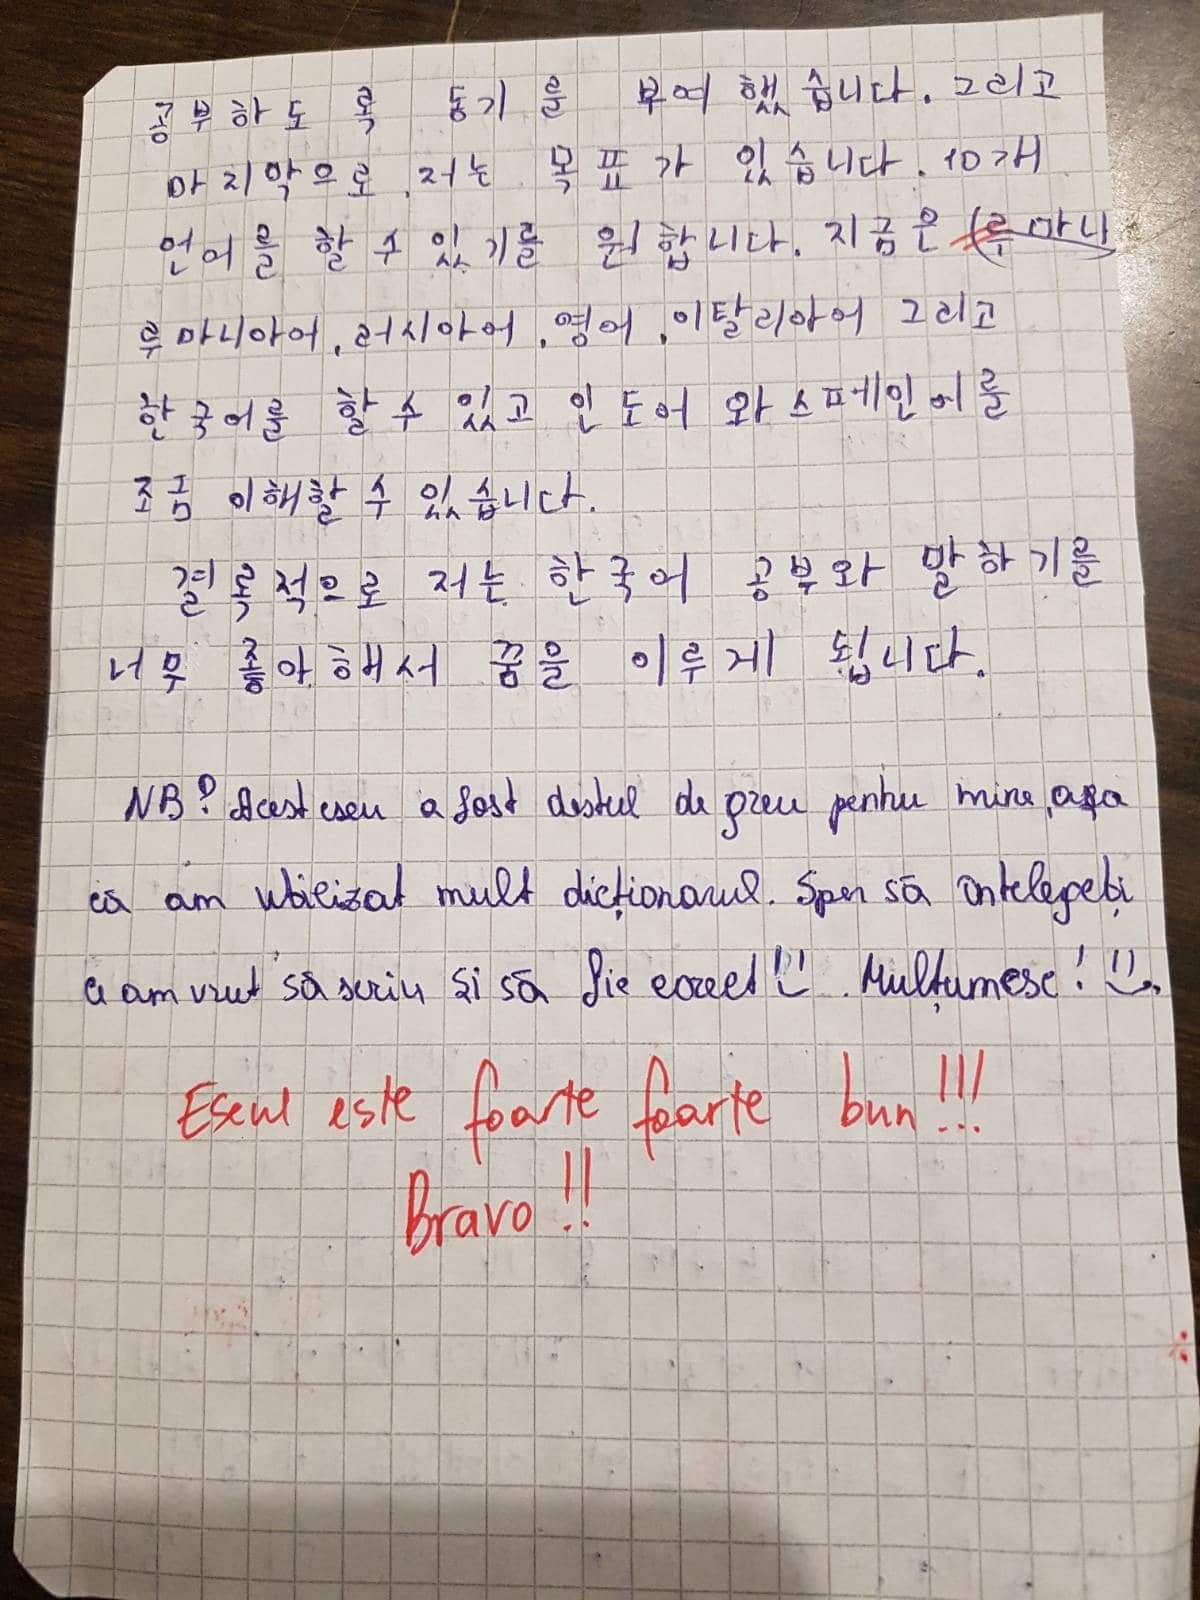 공부하도록 동기를 부여했습니다. 그리고
마지막으로, 저는 목표가 있습니다. 10개
언어를 할 수 있기를 원합니다. 지금은 (루마니
루마니아어, 러시아어, 영어, 이탈리아어 그리고
한국어를 할 수 있고 인도어와 스페인어를
조금 이해할 수 있습니다.
결록적으로 저는 한국어 공부와 말하기를
너무 좋아해서 꿈을 이루게 됩니다.
NB! Acest eseu a fost destul de greu pentru mine, așa
că am utilizat mult dicționarul. Sper să înțelegeți
ce am vrut să scriu și să fie corect!! Mulțumesc!
Eseul este foarte foarte bun!!!
Bravo!!